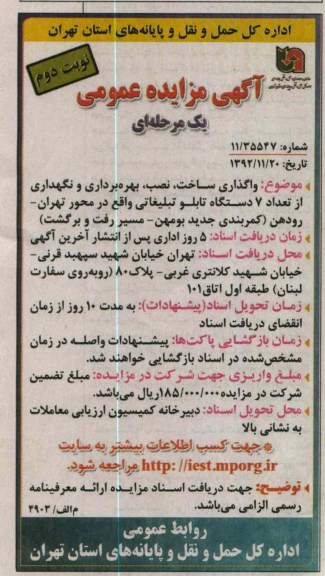 اداره کل حمل و نقل و پایانه‌های استان تهران
نوبت دوم
آگهی مزایده عمومی
یک مرحله‌ای
شماره: ۱۱/۳۵۵۴۷
تاریخ: ۱۳۹۲/۱۱/۲۰
موضوع: واگذاری ساخت، نصب، بهره‌برداری و نگهداری
از تعداد ۷ دستگاه تابلو تبلیغاتی واقع در محور تهران-
رودهن (کمربندی جدید بومهن- مسیر رفت و برگشت)
زمان دریافت اسناد: ۵ روز اداری پس از انتشار آخرین آگهی
محل دریافت اسناد: تهران خیابان شهید سپهبد قرنی-
خیابان شهید کلانتری غربی- پلاک۸۰ (روبه‌روی سفارت
لبنان) طبقه اول اتاق۱۰۱
زمان تحویل اسناد(پیشنهادات): به مدت ۱۰ روز از زمان
انقضای دریافت اسناد
زمان بازگشایی پاکت‌ها: پیشنهادات واصله در زمان
مشخص‌شده در اسناد بازگشایی خواهند شد.
مبلغ واریزی جهت شرکت در مزایده: مبلغ تضمین
شرکت در مزایده۱۸۵/۰۰۰/۰۰۰ریال می‌باشد.
محل تحویل اسناد: دبیرخانه کمیسیون ارزیابی معاملات
به نشانی بالا
جهت کسب اطلاعات بیشتر به سایت
http: //iest.mporg.ir مراجعه شود.
توضیح: جهت دریافت اسناد مزایده ارائه معرفینامه
رسمی الزامی می‌باشد.
م/الف/ ۲۹۰۳
روابط عمومی
اداره کل حمل و نقل و پایانه‌های استان تهران